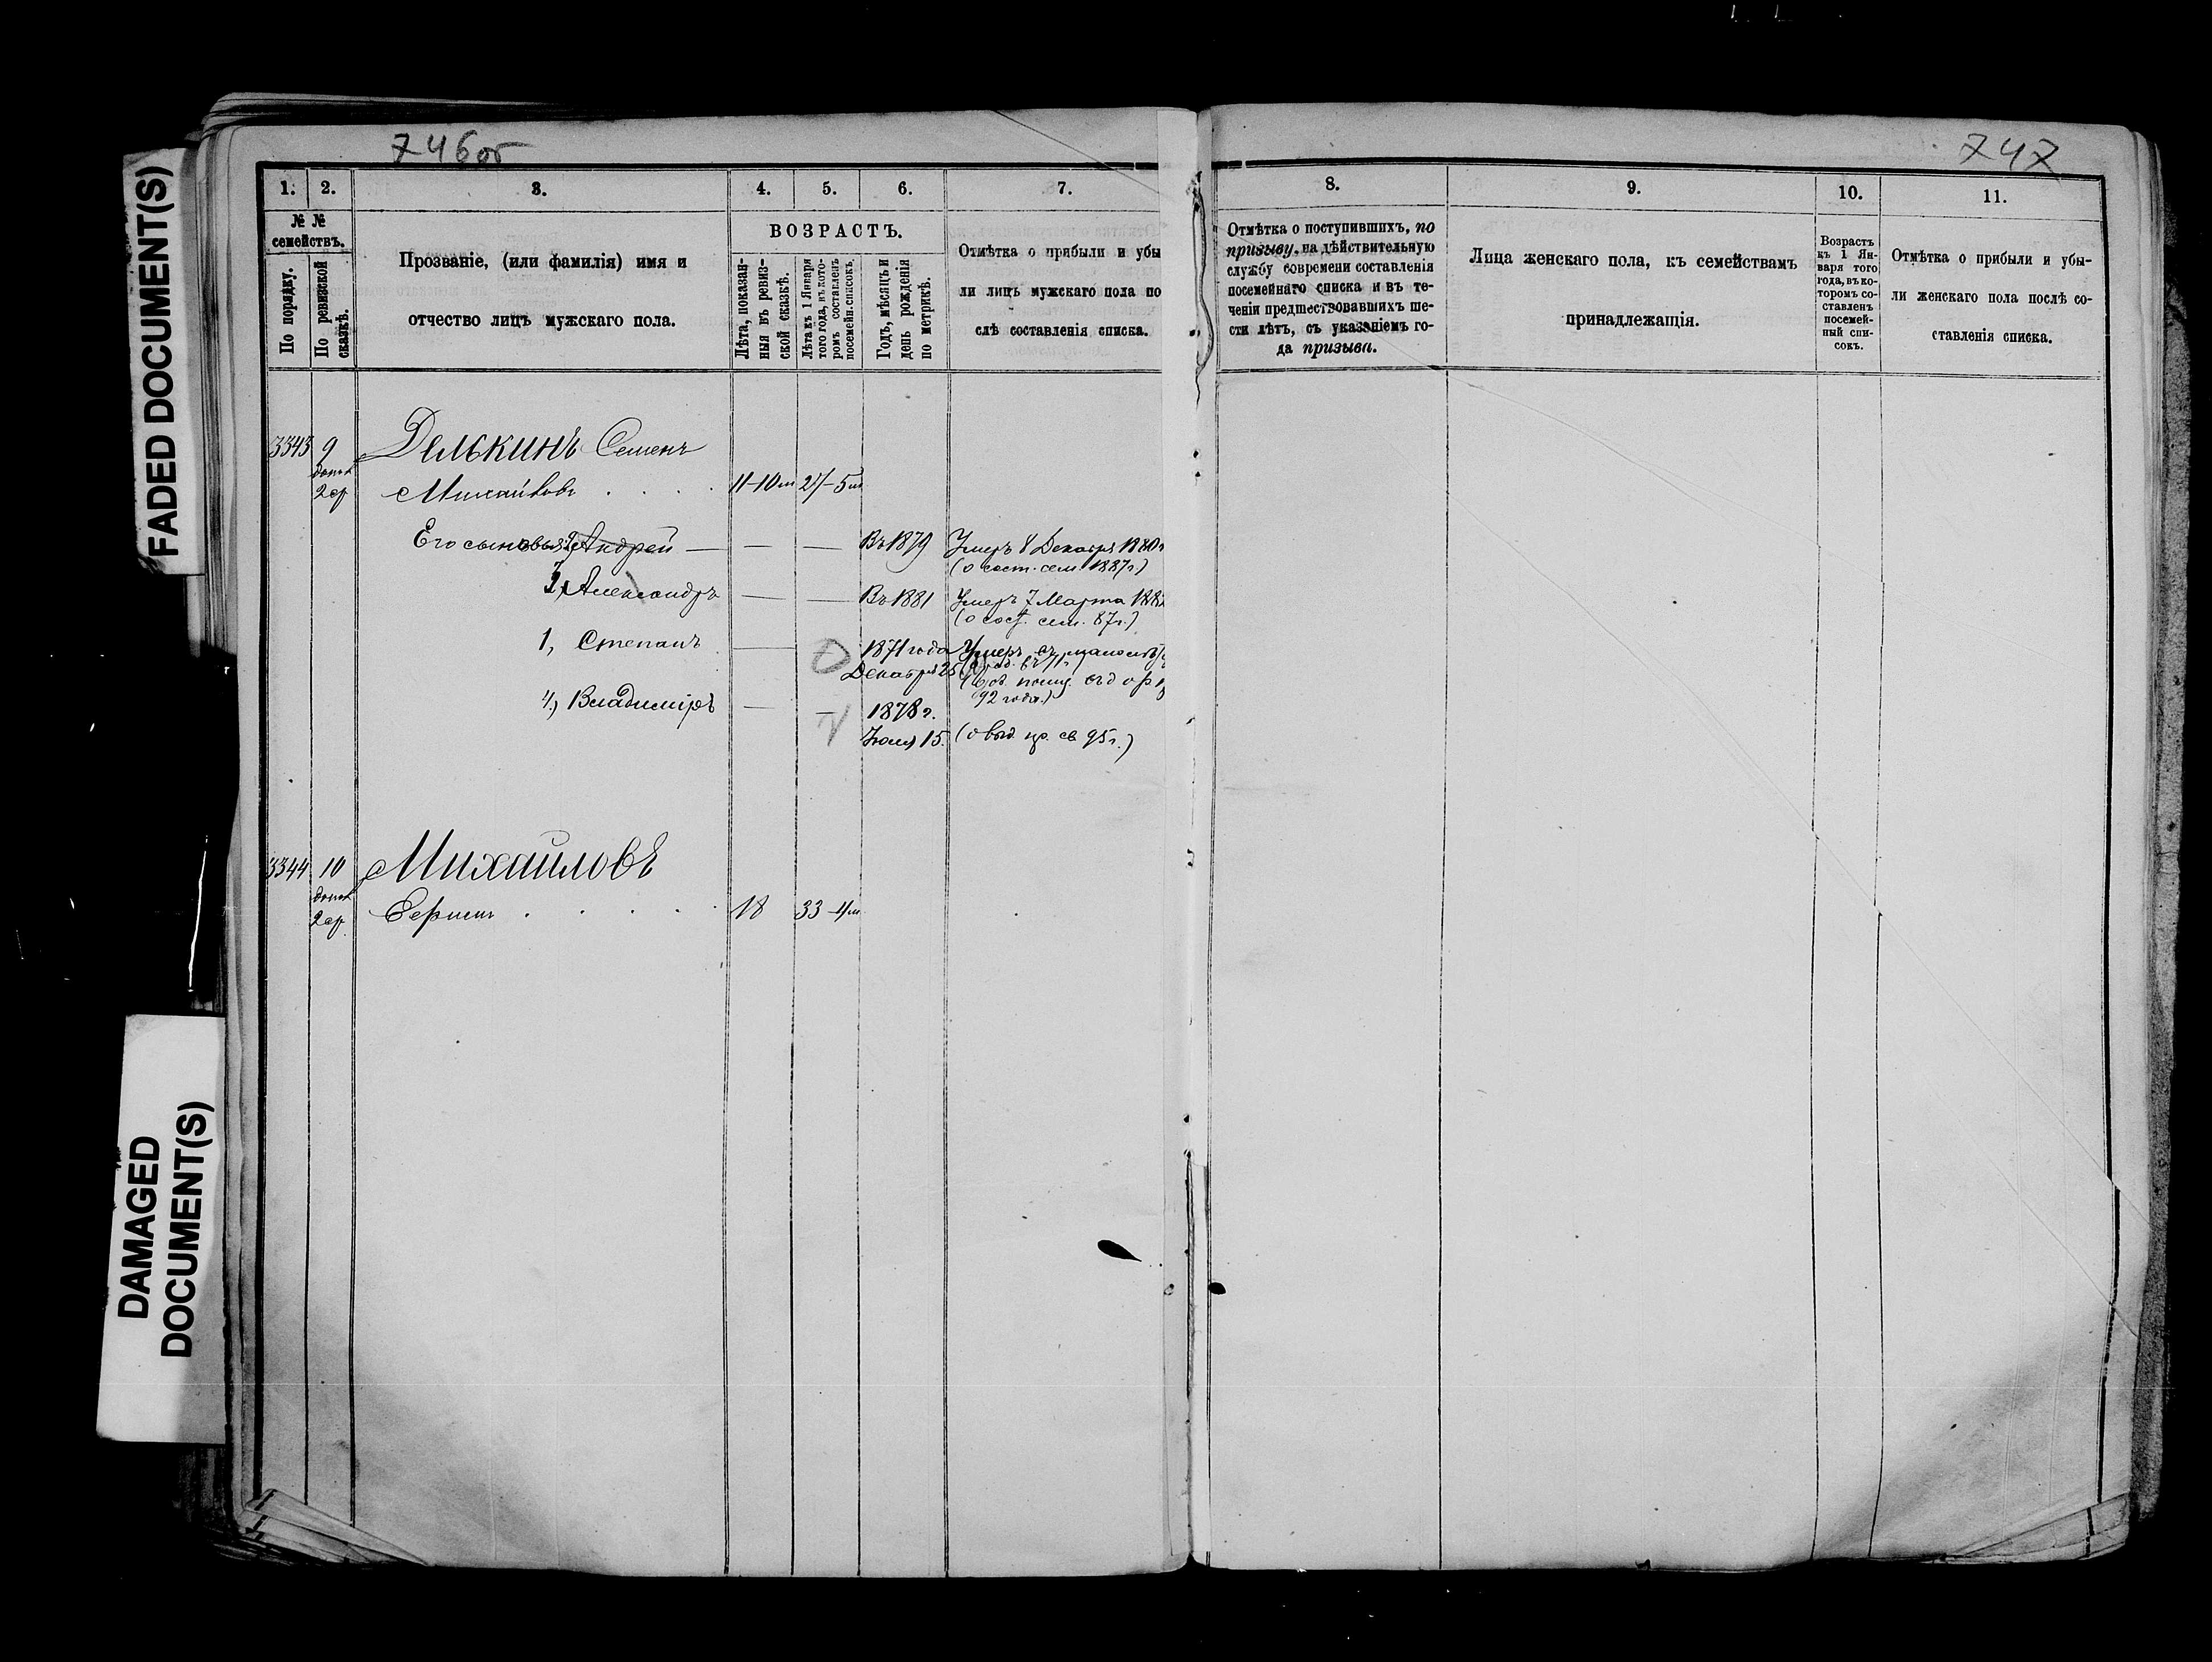 FADED DOCUMENT(S)
DAMAGED
DOCUMENT(S)
746об
1. 2. 3. 4. 5. 6. 7.
№ №
семействъ.
По порядку.
По ревизской
сказкѣ.
Прозваніе, (или фамилія) имя и
отчество лицъ мужскаго пола.
ВОЗРАСТЪ.
Лѣта, показан-
ныя въ ревиз-
ской сказкѣ.
Лѣта къ 1 Января
того года, въ кото-
ромъ составленъ
посемейн. списокъ.
Годъ, мѣсяцъ и
день рожденія
по метрикѣ.
Отмѣтка о прибыли и убы
ли лицъ мужскаго пола по
слѣ составленія списка.
3343 9 Делькинъ Семенъ
допол
2 ср Михайловъ . . . . 11-10м 27-5м
Его сыновья: Андрей — — — Въ 1879 Умеръ 8 Декабря 1880г
(о сост. сем. 1887г.)
Александръ — — Въ 1881 Умеръ 7 Марта 188
(о сост. сем. 87г.)
1, Степанъ — 1871 года Умеръ
Декабря 25
92 года.)
4, Владиміръ — — 1878г.
Іюля 15. (о выд. пр. св 95г.)
3344 10 Михайловъ
допол
2 ср. Сергѣй . . . . . 18 33-4м
747
8. 9. 10. 11.
Отмѣтка о поступившихъ, по
призыву, на дѣйствительную
службу во времени составленія
посемейнаго списка и въ те-
ченіи предшествовавшихъ ше-
сти лѣтъ, съ указаніемъ го-
да призыва.
Лица женскаго пола, къ семействамъ
принадлежащія.
Возрастъ
къ 1 Ян-
варя того
года, въ ко-
торомъ со-
ставленъ
посемей-
ный спи-
сокъ.
Отмѣтка о прибыли и убы-
ли женскаго пола послѣ со-
ставленія списка.